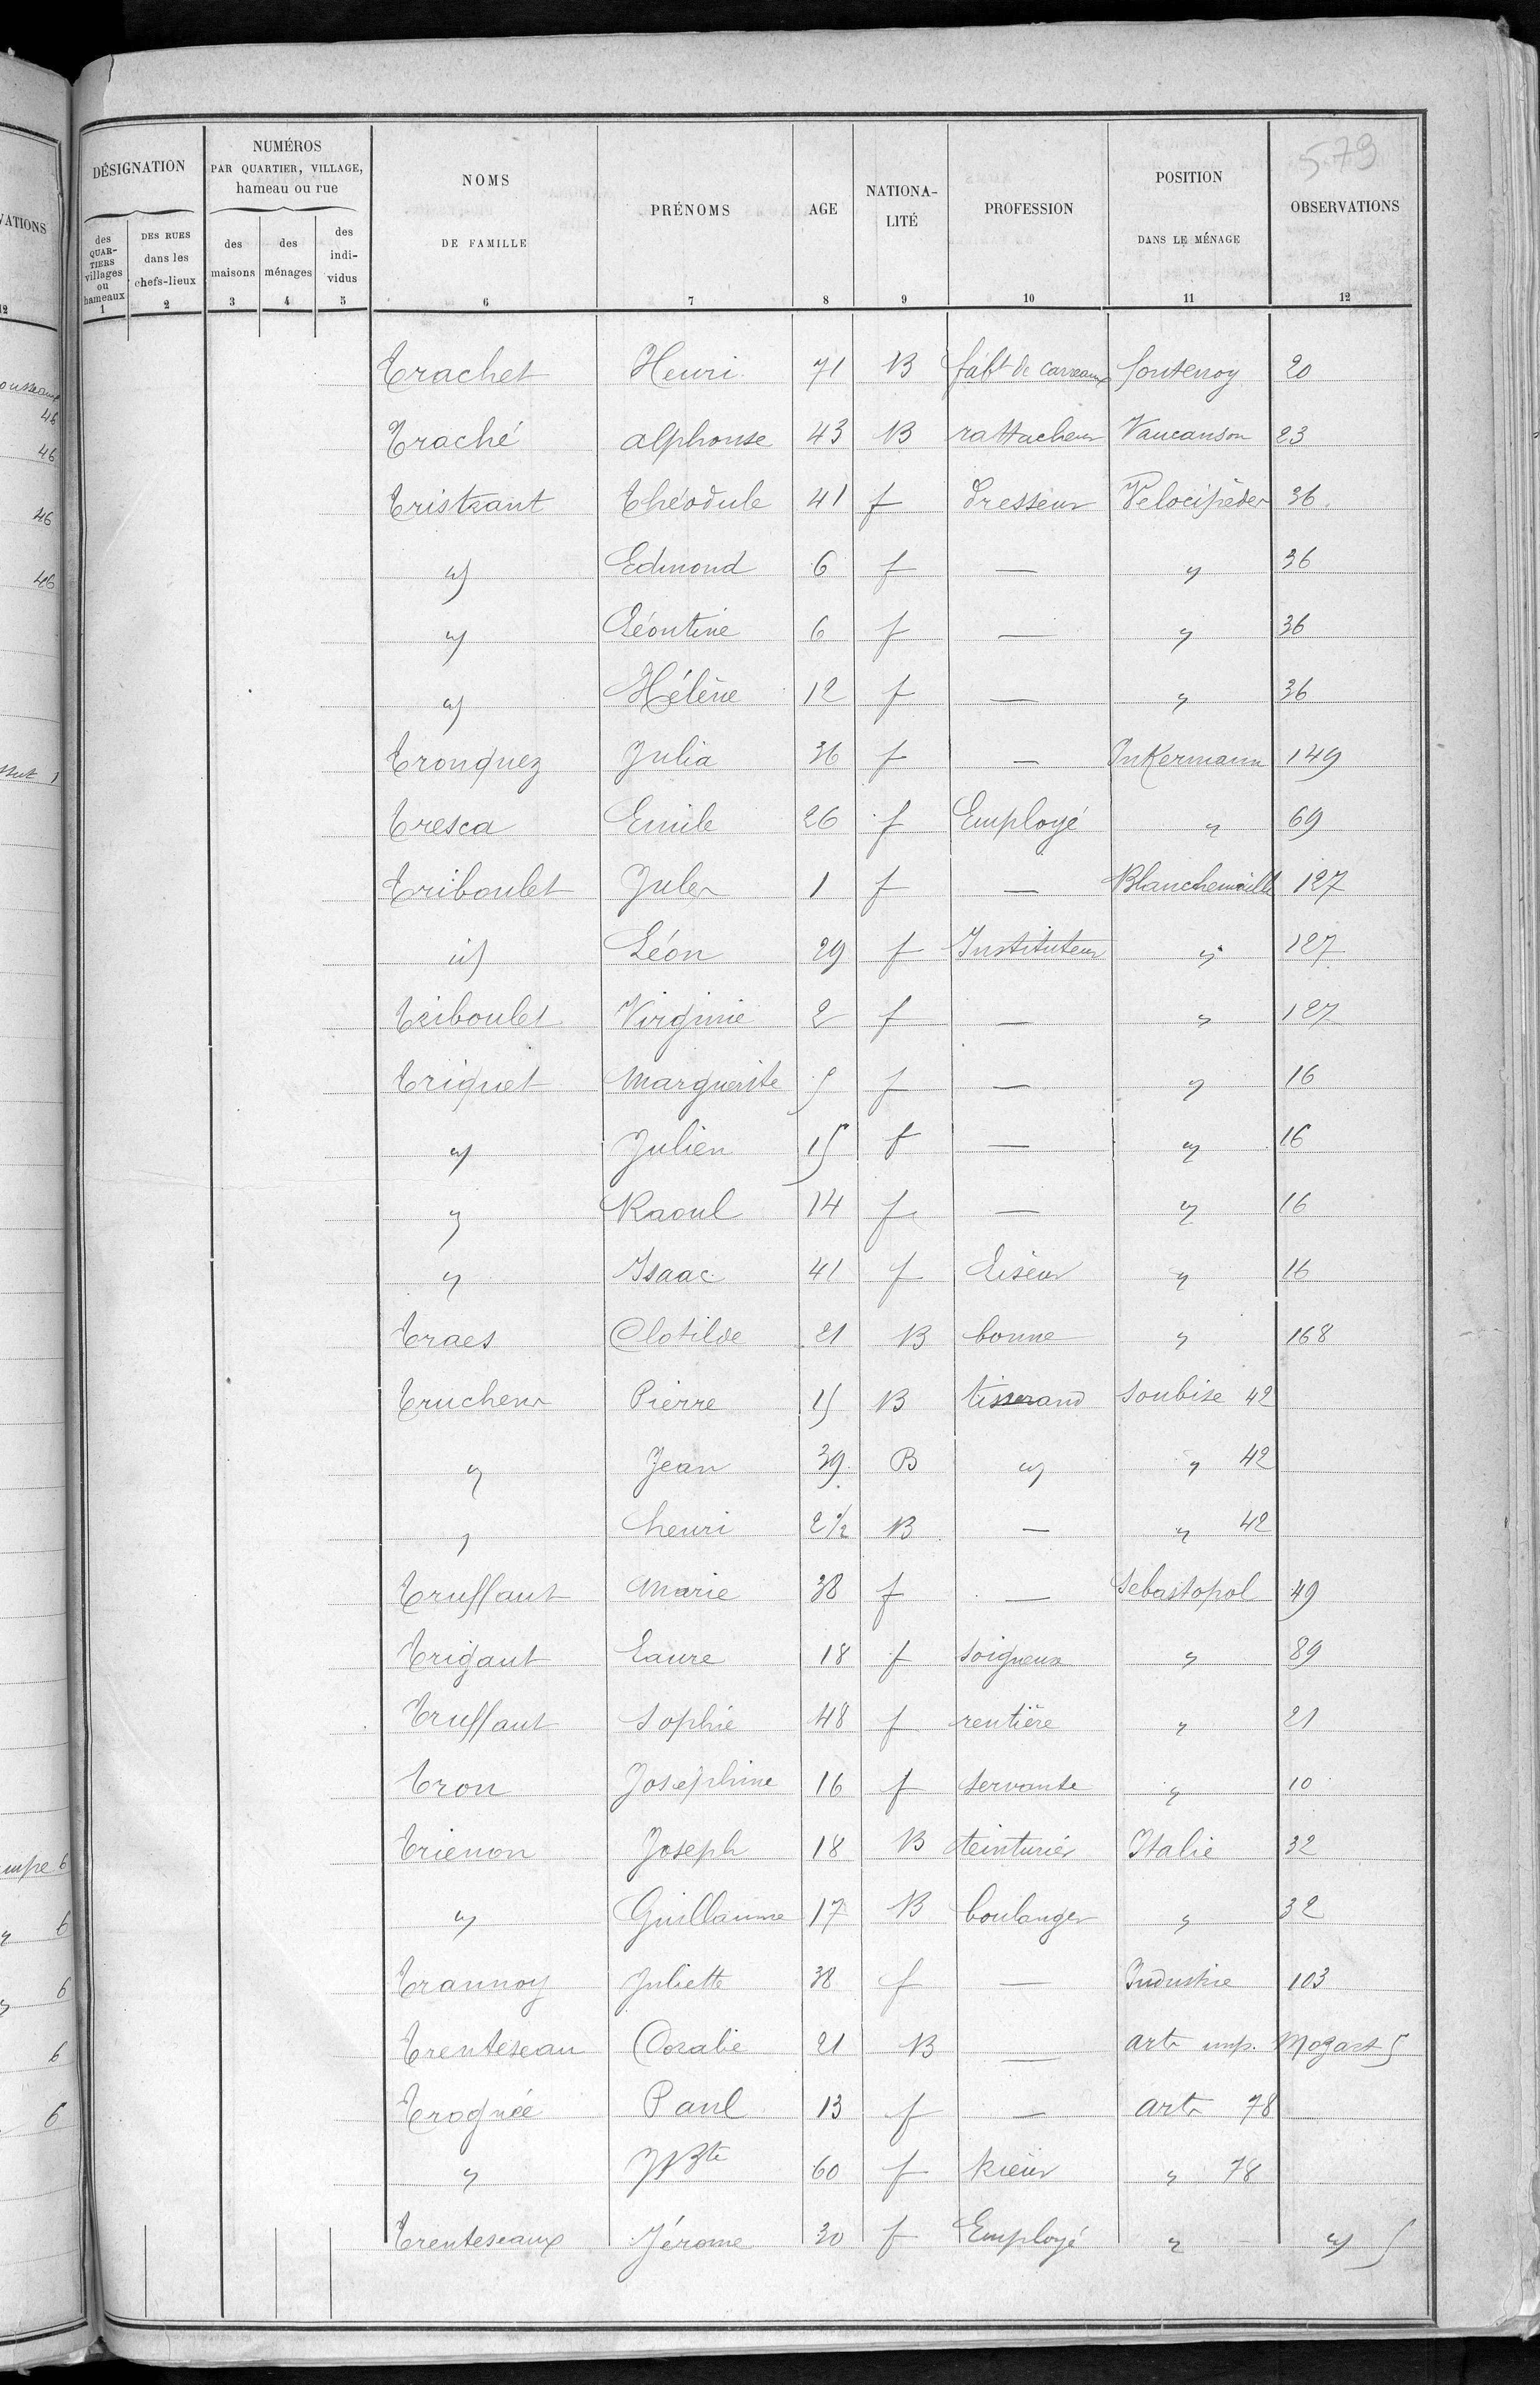 579
DÉSIGNATION
NUMÉROS
PAR QUARTIER, VILLAGE,
hameau ou rue
NOMS
DE FAMILLE
PRÉNOMS
AGE
NATIONA-
LITÉ
PROFESSION
POSITION
DANS LE MÉNAGE
OBSERVATIONS
des
QUAR-
TIERS
villages
ou
hameaux
DES RUES
dans les
chefs-lieux
des
maisons
des
ménages
des
indi-
vidus
1 2 3 4 5 6 7 8 9 10 11 12
Trachet Henri 71 B fabt de carreaux fontenoy 20
Traché alphonse 43 B rattacheur Vaucanson 23
Tristrant Théodule 41 f Dresseur Velocipèder 36.
" Edmond 6 f — " 36
" Léontine 6 f — " 36
" Hélène 12 f — " 36
Tronquez Julia 36 f — Inkermann 149
Tresca Emile 26 f Employé " 69
Triboulet Jules 1 f — Blanchemaille 127
id Léon 29 f Instituteur " 127
Triboulet Virginie 2 f — " 127
Triquet Marguerite 5 f — " 16
" Julien 15 f — " 16
" Raoul 14 f — " 16
" Isaac 41 f Liseur " 16
Traes Clotilde 21 B bonne " 168
Trucheur Pierre 15 B tisserand Soubise 42
" Jean 39 B " " 42
" henri 2 1/2 B — " 42
Truffaut Marie 38 f — Sebastopol 49
Trigaut Laure 18 f soigneuse " 89
Truffaut Sophie 48 f rentière " 21
Tron Joséphine 16 f servante " 10
Trienon Joseph 18 B teinturier Italie 32
" Guillaume 17 B boulanger " 32
Trannoy Juliette 38 f — Industrie 103
Trenteseau Coralie 21 B — arts imp. Mozart 5
Trognée Paul 13 f — arts 78
" JBte 60 f " 78
Trenteseaux Jérome 30 f Employé " " 5